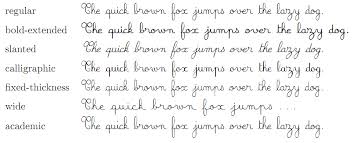 regular The quick brown fox jumps over the lazy dog.
bold-extended The quick brown fox jumps over the lazy dog.
slanted The quick brown fox jumps over the lazy dog.
calligraphic The quick brown fox jumps over the lazy dog.
fixed-thickness The quick brown fox jumps over the lazy dog.
wide The quick brown fox jumps ...
academic The quick brown fox jumps over the lazy dog.